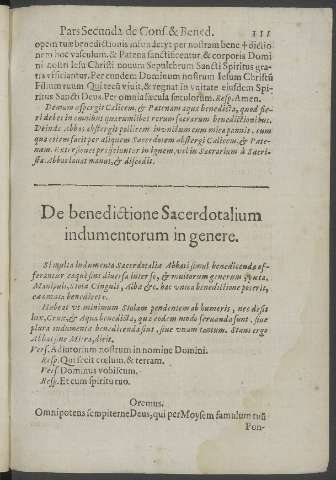 Pars Secunda de Cons. & Bened. 111
opem tuæ benedictionis infundet, vt per nostram bene † dictio-
nem hoc vasculum, & Patena sanctificentur, & corporis Domi
ni nostri Iesu Christi nouum Sepulchrum Sancti Spiritus gra-
tia efficiantur. Per eundem Dominum nostrum Iesum Christū
Filium tuum Qui tecū viuit, & regnat in vnitate eiusdem Spi-
ritus Sancti Deus. Per omnia sæcula sæculorum. Resp. Amen.
Demum aspergit Calicem, & Patenam aqua benedicta, quod fie-
ri debet in omnibus quarumlibet rerum sacrarum benedictionibus.
Deinde Abbas abstergit pollicem inunctum cum mica pannis, cum
qua etiam facit per aliquem Sacerdotem abstergi Calicem, & Pate-
nam. Extersiones proijciuntur in ignem, vel in Sacrarium à Sacri-
sta. Abbas lauat manus, & discedit.
De benedictione Sacerdotalium
indumentorum in genere.
Si multa indumenta Sacerdotalia Abbati simul benedicenda of-
ferantur eaque sint diuersa inter se, & multorum generum, puta,
Manipuli, Stola Cinguli, Alba &c. hac vnica benedictione poterit,
ea omnia benedicere.
Habeat vt minimum Stolam pendentem ab humeris, nec desit
lox, Crux, & Aqua benedicta, quæ eodem modo seruanda sunt, siue
plura indumenta benedicenda sint, siue vnum tantum. Stans ergo
Abbas sine Mitra, dicit.
Vers. Adiutorium nostrum in nomine Domini.
Resp. Qui fecit cœlum, & terram.
Vers. Dominus vobiscum.
Resp. Et cum spiritu tuo.
Oremus.
Omnipotens sempiterne Deus, qui per Moysem famulum tuū
Pon-